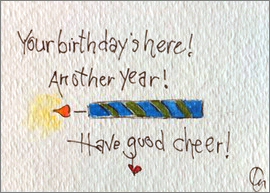 Your birthday's here!
Another year!
Have good cheer!